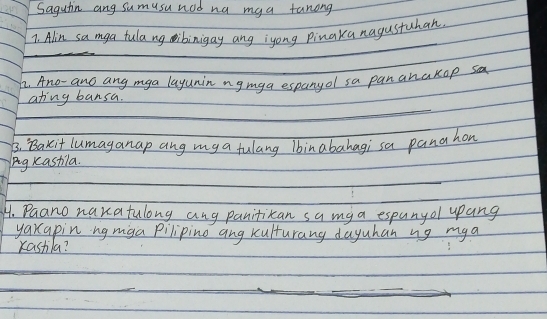 Sagutin ang sumusunod na mga tanong
1. Alin sa mga tula ng ibinigay ang iyong pinakanagustuhan.
2. Ano-ano ang mga layunin ng mga espanyol sa pananakop sa
ating bansa.
3. Bakit lumaganap ang mga tulang Ibinabahagi sa panahon
ng kastila.
4. Paano nakatulong ang panitikan sa mga espanyol upang
yakapin ng mga Pilipino ang kulturang dayuhan ng mga
kastila?